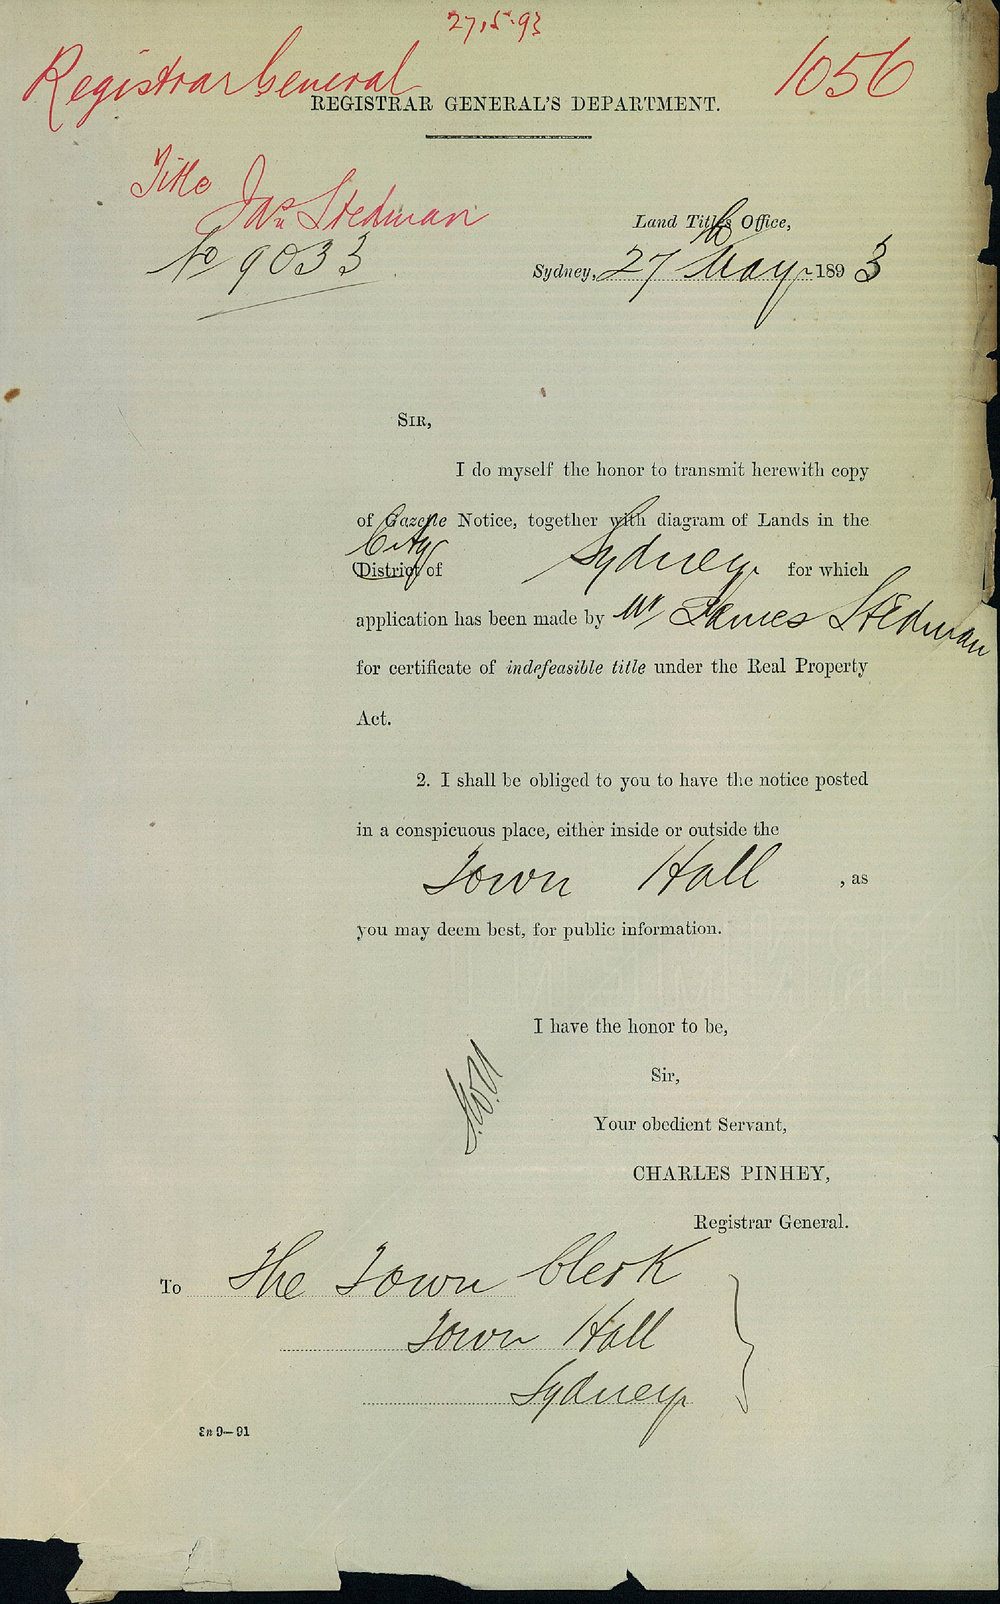 27.5.93
Registrar General
1056
REGISTRAR GENERAL'S DEPARTMENT.
Title
Jas Stedman
No 9033
Land Titles Office,
Sydney, 27th May 1893
SIR,
I do myself the honor to transmit herewith copy
of Gazette Notice, together with diagram of Lands in the
City
District of Sydney for which
application has been made by Mr James Stedman
for certificate of indefeasible title under the Real Property
Act.
2. I shall be obliged to you to have the notice posted
in a conspicuous place, either inside or outside the
Town Hall , as
you may deem best, for public information.
I have the honor to be,
Sir,
Your obedient Servant,
CHARLES PINHEY,
Registrar General.
To The Town Clerk
Town Hall
Sydney
9—91